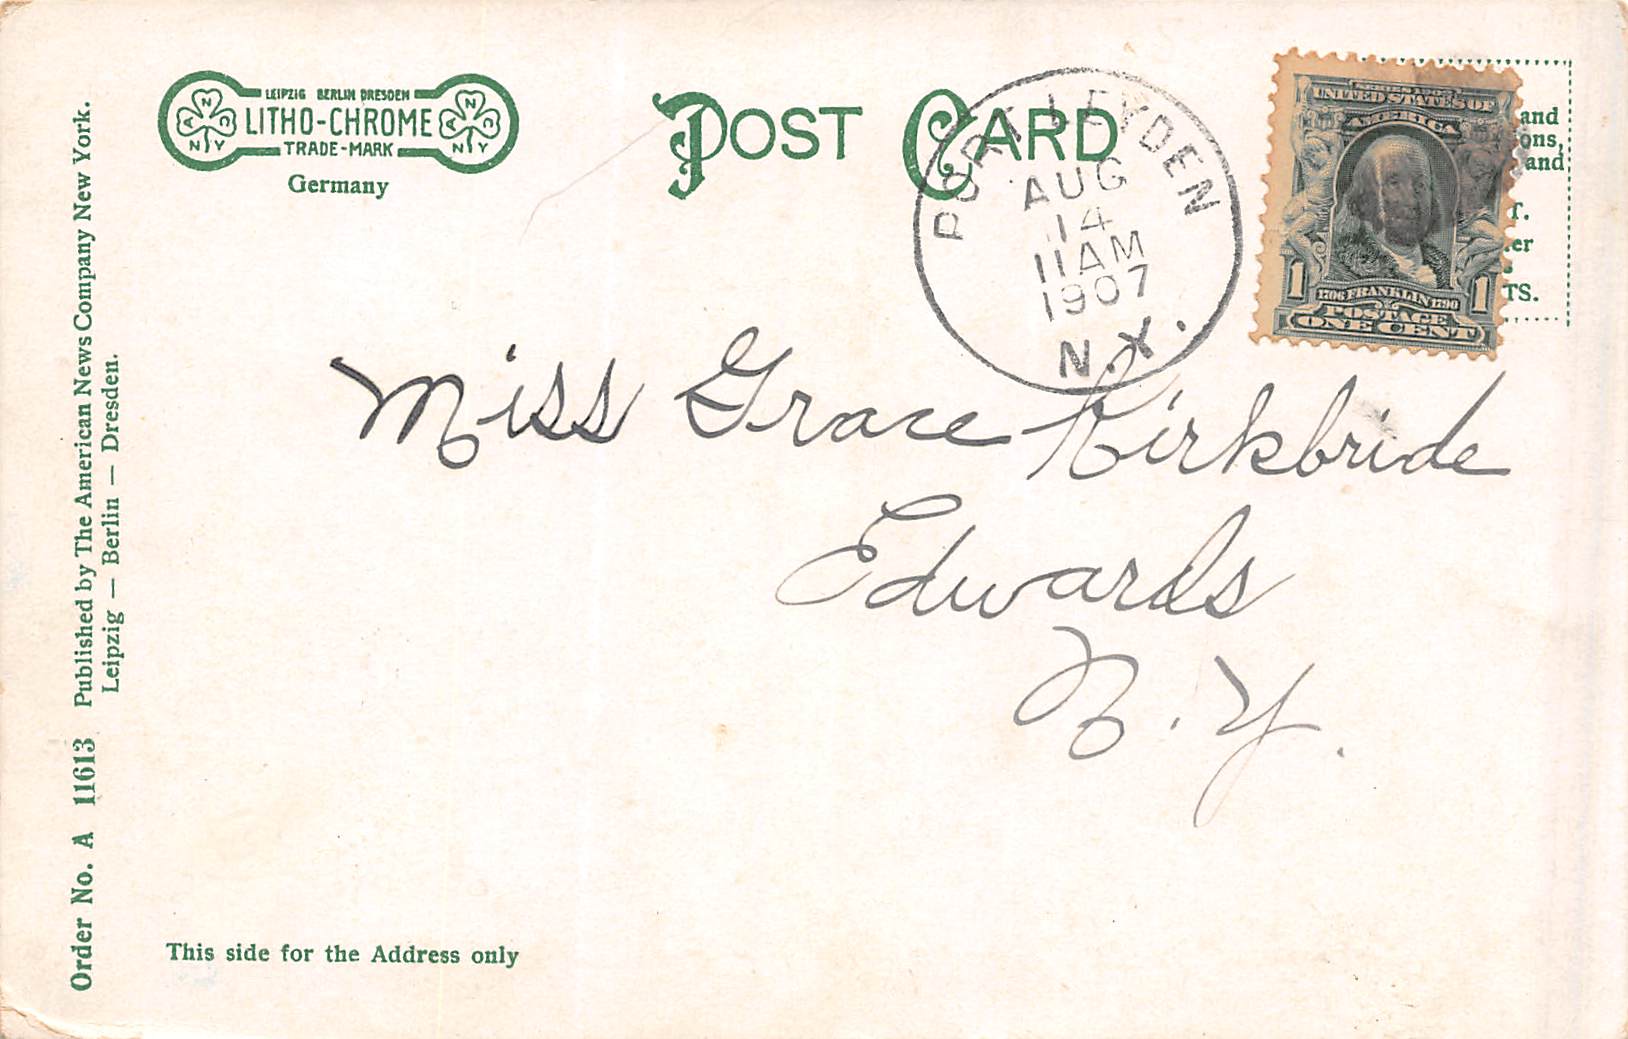 LEIPZIG BERLIN DRESDEN
LITHO-CHROME
TRADE-MARK
N A N C NY
N A N C NY
Germany
POST CARD
PORT LEYDEN
AUG
14
11 AM
1907
N.Y.
SERIES 1902
UNITED STATES OF
AMERICA
1 1
1706 FRANKLIN 1790
POSTAGE
ONE CENT
and
ons,
and
T.
er
TS.
Miss Grace Kirkbride
Edwards
N.Y.
This side for the Address only
Order No. A 11613 Published by The American News Company New York.
Leipzig — Berlin — Dresden.